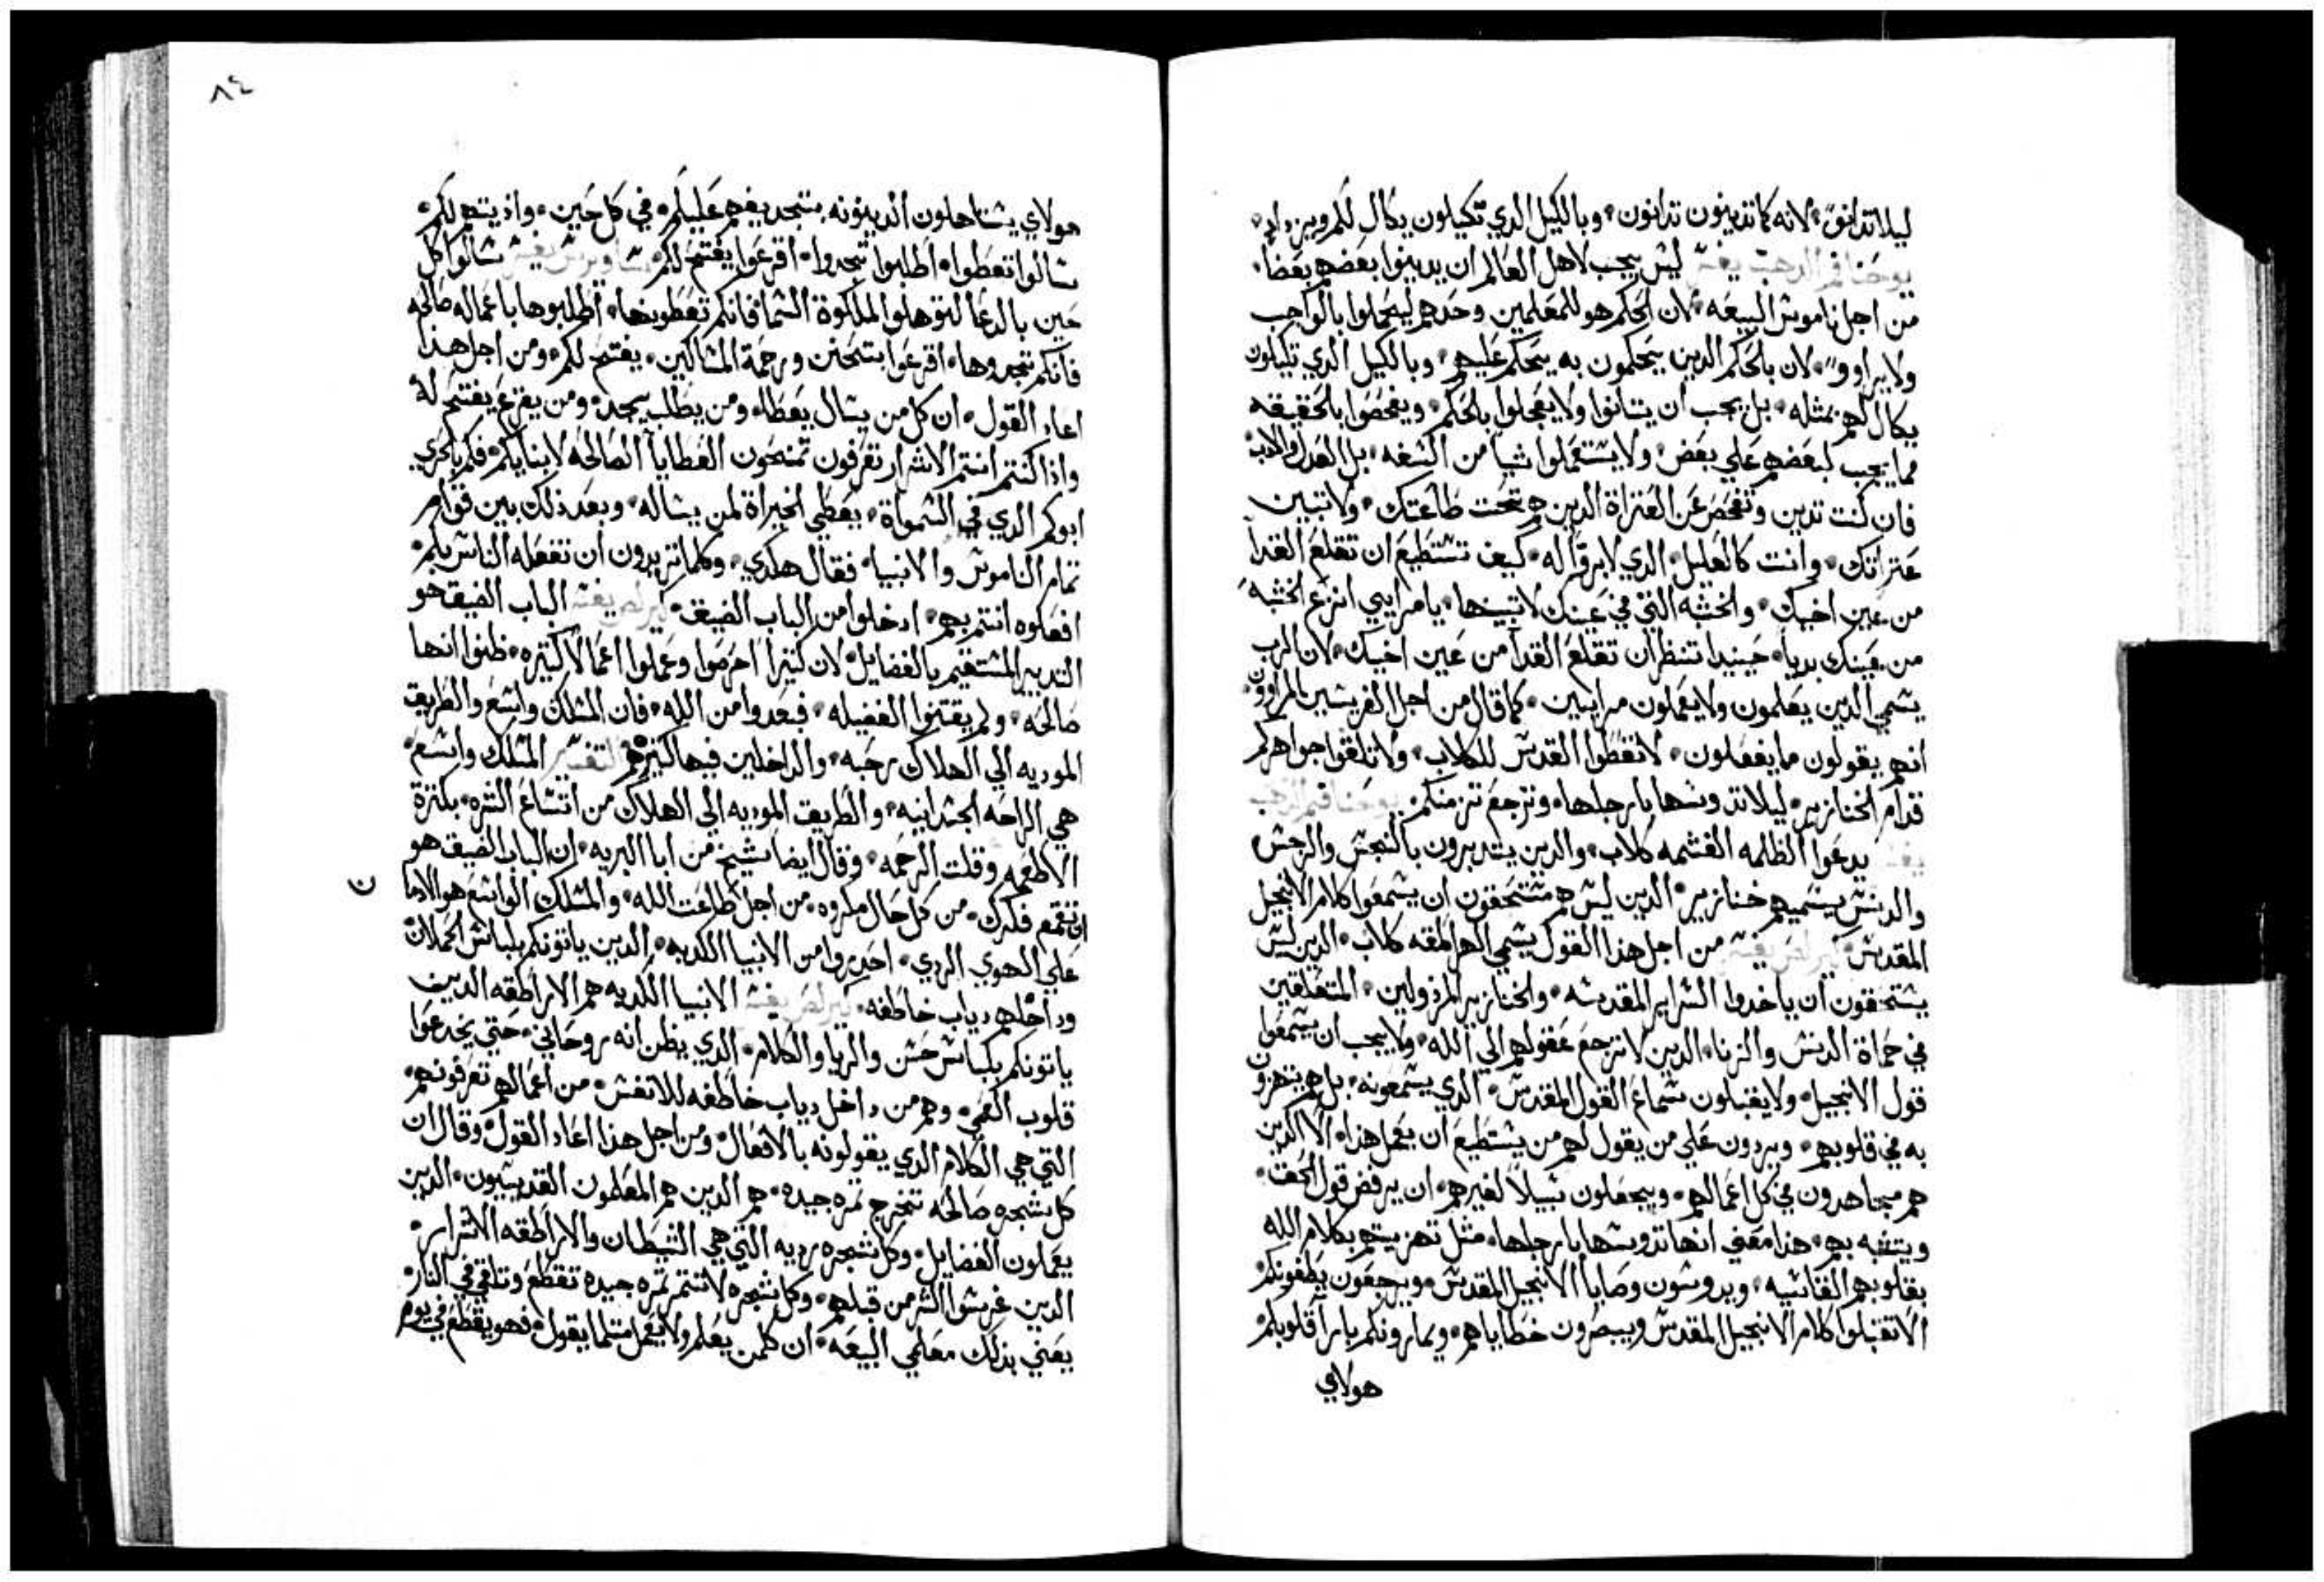 ليلا تدانوا، لانه كما تدينون تدانون، وبالكيل الدي تكيلون يكال لكم ويزداد،
يوحنا فم الدهب يفسر ليس يجب لاهل العالم ان يدينوا بعضهم بعضا،
من اجل ناموس البيعه، لان الحكم هو للمعلمين وحدهم ليعملوا بالواجب
ولا يراووا، لان بالحكم الدين يحكمون به يحكم عليهم، وبالكيل الدي تكيلون
يكال لهم بمثله، بل يجب ان يتانوا ولا يعجلوا بالحكم، ويفحصوا بالحقيقه
مما يجب لبعضهم علي بعض، ولا يستعملوا شيا من السفه، بل العدل والادب
فان كنت تدين وتفحص عن العتراة الدين هم تحت طاعتك، ولا تبين
عتراتك، وانت كالعليل، الدي لا برو له، كيف تستطيع ان تقلع القدا
من عين اخيك، والخشبه التي في عينك لا تبينها، يا مرايي انزع الخشبه
من عينك بديا، حينيد تنظر ان تقلع القدا من عين اخيك، لان الرب
يسمي الدين يعلمون ولا يعملون مرايين، كما قال من اجل الفريسيين المراوون
انهم يقولون ما يفعلون، لا تعطوا القدس للكلاب، ولا تلقوا جواهركم
قدام الخنازير، ليلا تدوسها بارجلها، وترجع تزمنكم، يوحنا فم الدهب
يفسر يدعوا الظلمه الغشمه كلاب، والدين يتدبرون بالنجس والرجس
والدنس يسميهم خنازير، الدين ليس هم مستحقون ان يسمعوا كلام الانجيل
المقدس، كيرلص يفسر من اجل هذا القول يسمي الهراطقه كلاب، الدين ليس
يستحقون ان ياخدوا السراير المقدسه، والخنازير المرذولين، المتعلقين
في حماة الدنس والزنا، الدين لا ترجع عقولهم الي الله، ولا يجب ان يسمعوا
قول الانجيل، ولا يقبلون سماع القول المقدس، الدي يسمعونه، بل هم يتهزون
به في قلوبهم، ويردون علي من يقول لهم من يستطيع ان يعمل هذا، الا الدين
هم مجاهدون في كل اعمالهم، ويجعلون سبيلا لغيرهم، ان يرفض قول الحق،
ويتشبه بهم، هذا معني انها تدوسها بارجلها، مثل تهزيتهم بكلام الله
بقلوبهم القاسيه، ويدوسون وصايا الانجيل المقدس، ويرجعون يطغونكم
الا تقبلوا كلام الانجيل المقدس ويبصرون خطاياهم، ويمارونكم بامرا قلوبكم
هولاي
٨٤
هولاي يستاهلون الدينونه بتجديفهم عليكم، في كل حين، واذ يتهم لكم،
سالوا تعطوا، اطلبوا تجدوا، اقرعوا يفتح لكم، ساويرس يفسر سالوا كل
حين بالدعا لتوهلوا لملكوة السما فانكم تعطونها، اطلبوها باعماله صالحه
فانكم تجدوها، اقرعوا بتحنن ورحمة المساكين، يفتح لكم، ومن اجل هذا
اعاد القول، ان كل من يسال يعطا، ومن يطلب يجد، ومن يقرع يفتح له
واذا كنتم انتم الاشرار تعرفون تمنحون العطايا الصالحه لابنايكم، فكم بالحري
ابوكم الدي في السمواة، يعطي الخيراة لمن يساله، وبعد ذلك بين قوام
تمام الناموس والانبيا، فقال هكدي، وكلما تريدون ان تفعله الناس بكم،
افعلوه انتم بهم، ادخلوا من الباب الضيق، كيرلص يفسر الباب الضيق هو
التدبير المستقيم بالفضايل، لان كتيرا احرصوا وعملوا اعمالا كتيره، ظنوا انها
صالحه، ولم يقتنوا الفضيله، فبعدوا من الله، فان المسلك واسع والطريق
الموديه الي الهلاك رحبه، والداخلين فيها كتيرهم، التفسير المسلك واسع،
هي الراحه الجسدانيه، والطريق الموديه الي الهلاك من اتساع الشره، بكترة
الاطعمه وقلت الرحمه، وقال ايضا شيخ من ابا البريه، ان الباب الضيق هو
ان تقمع فكرك، من كل حال مكروه، من اجل طاعت الله، والمسلك الواسع هو الادمان
علي الهوي الردي، احدروا من الانبيا الكدبه، الدين ياتونكم بلباس الحملان
وداخلهم دياب خاطفه، كيرلص يفسر الانبيا الكدبه هم الاراطقه الدين
ياتونكم بلباس حسن والريا والكلام، الدي يظن انه روحاني، حتي يخدعوا
قلوب العمي، وهم من داخل دياب خاطفه للانفس، من اعمالهم تعرفونهم،
التي هي الكلام الدي يقولونه بالافعال، ومن اجل هذا اعاد القول، وقال ان
كل شجره صالحه تخرج تمره جيده، هم الدين هم المعلمون القديسيون، الدين
يعملون الفضايل، وكل شجره رديه التي هي الشيطان والاراطقه الاشرار،
الدين غرسوا الشر من قبلهم، وكل شجره لا تتمر تمره جيده تقطع وتلقي في النار،
يعني بذلك معلمي البيعه، ان كلمن يعلم ولا يعمل متلما يقول، فهو يقطع في يوم